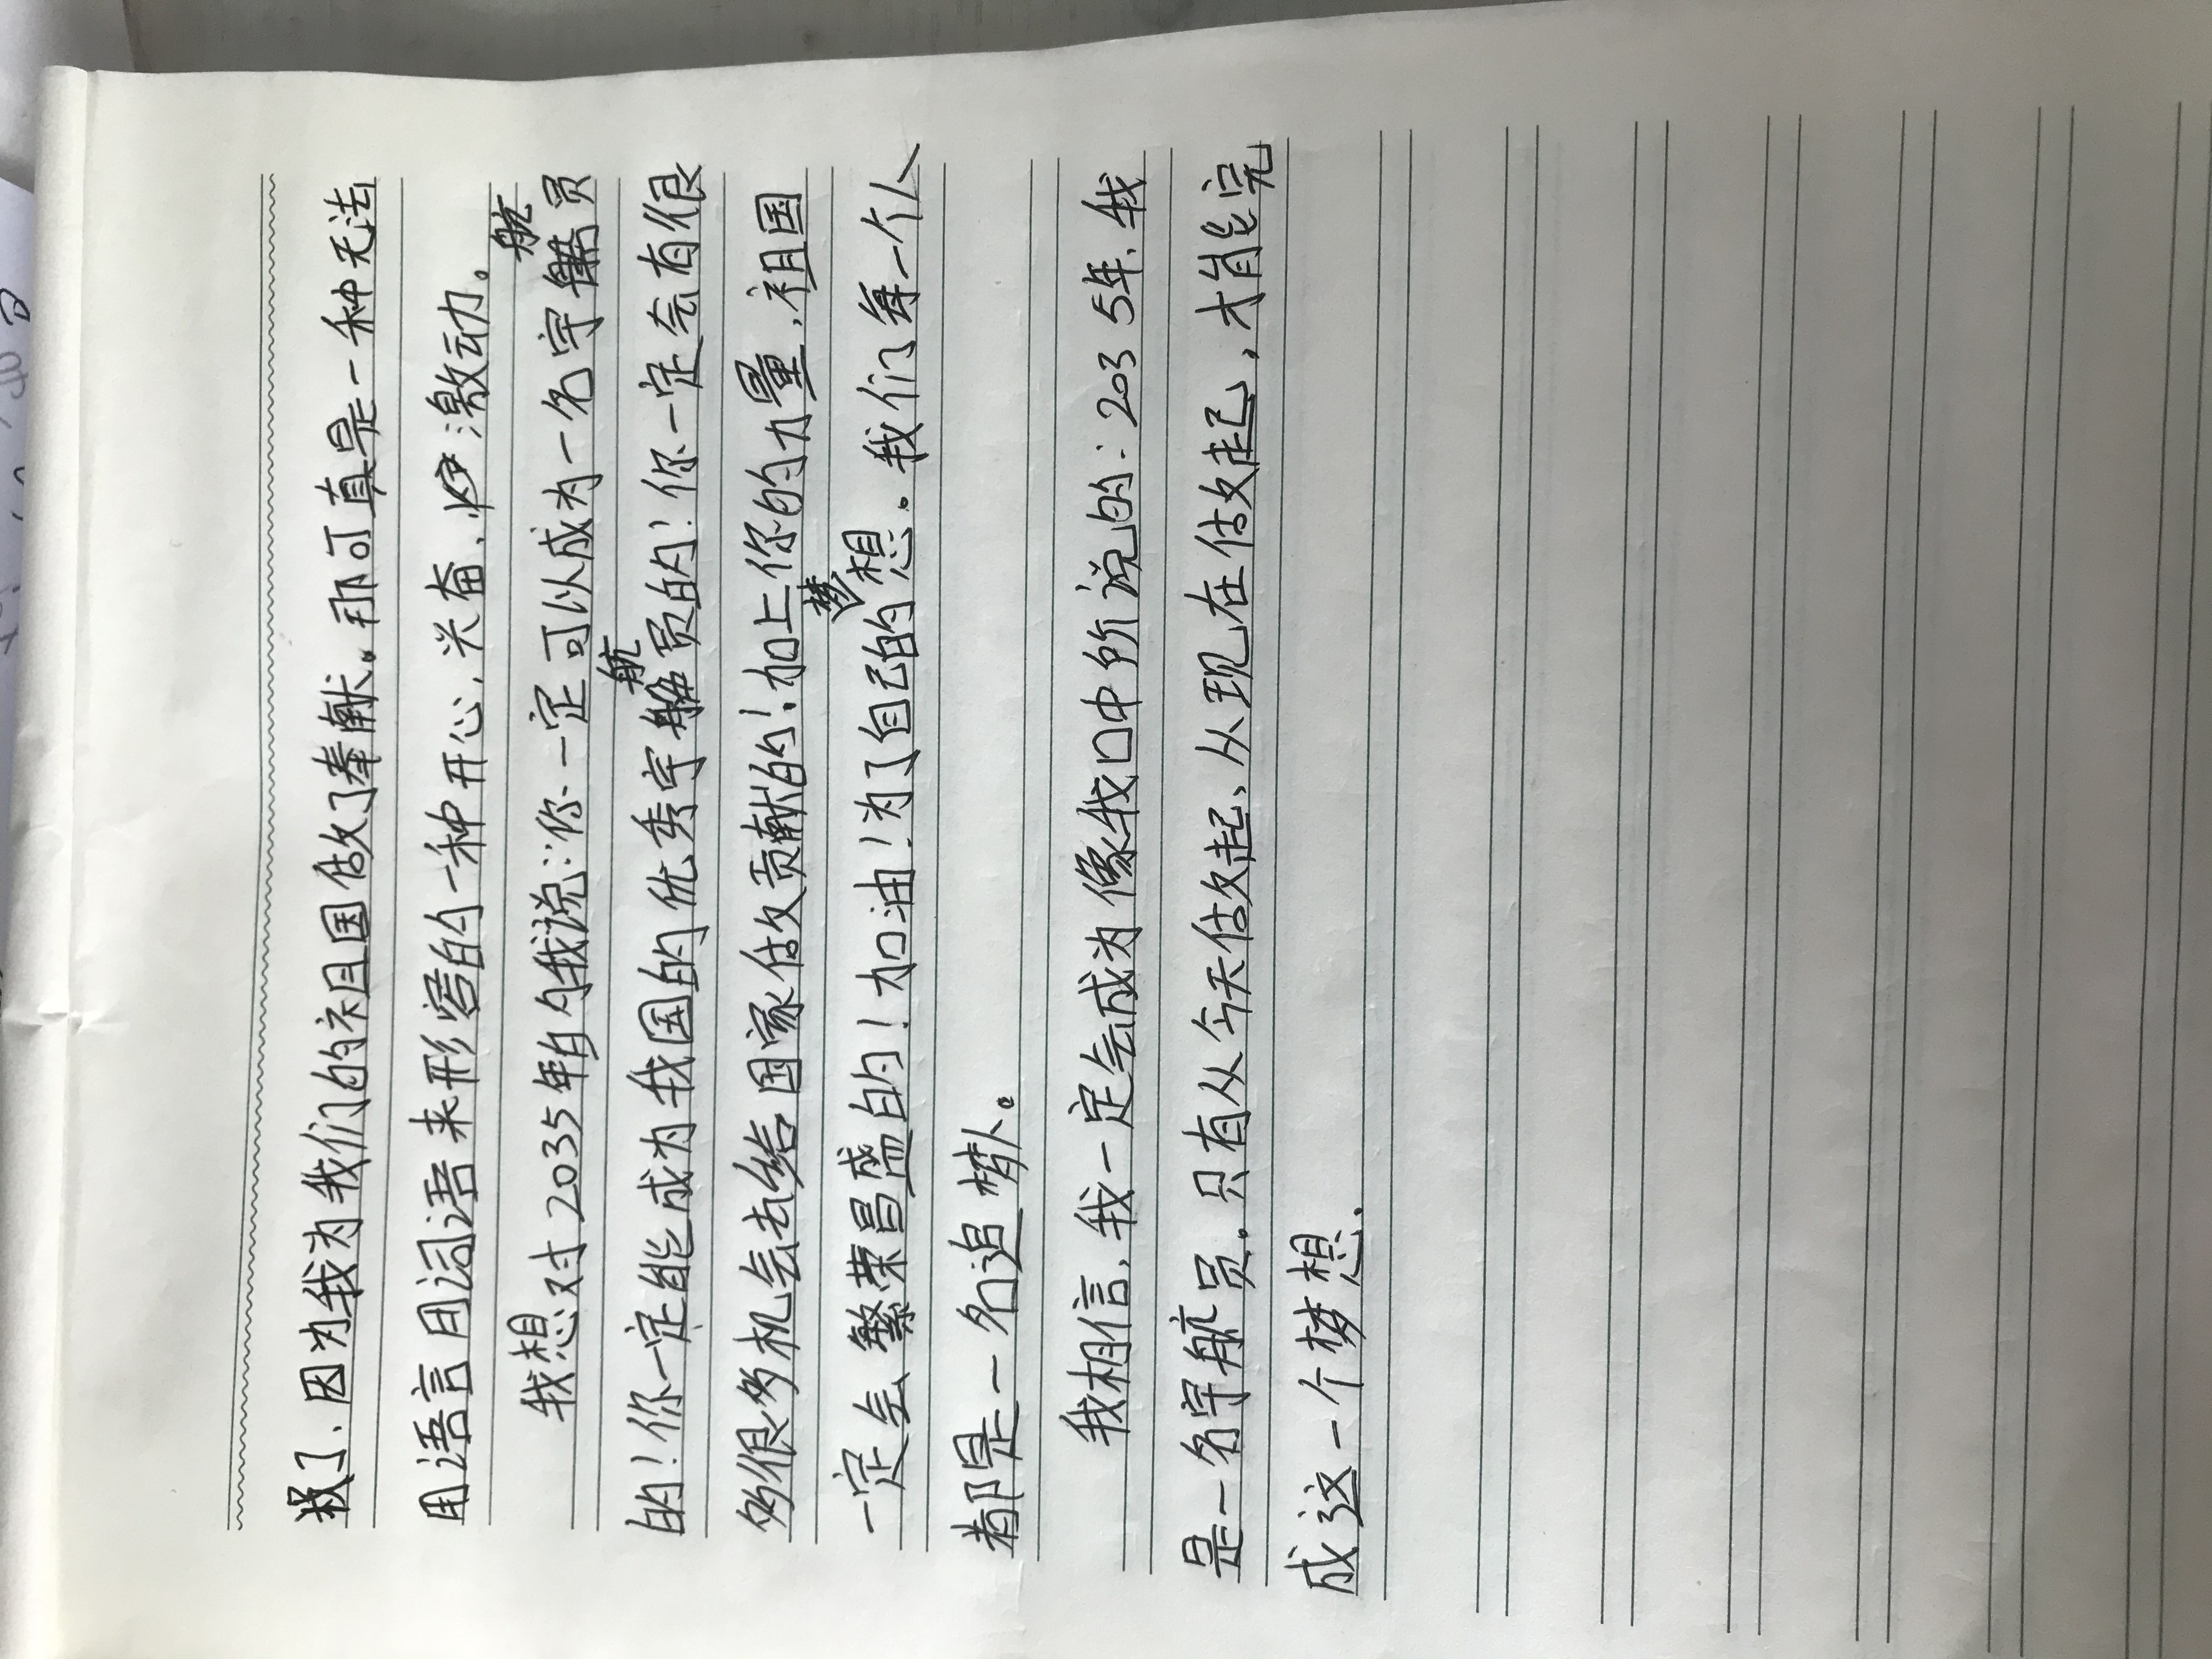 我了、因为我为我们的祖国做了奉献。那可真是一种无法
用语言用词语来形容的一种开心、兴奋、激动。
我想对2035年的我说:你一定可以成为一名宇航员
的!你一定能成为我国的优秀宇航员的!你一定会有很
多很多机会去给国家做贡献的!加上你的力量,祖国
一定会繁荣昌盛的!加油!为了自己的梦想。我们每一个人
都是一名追梦人。
我相信,我一定会成为像我口中所说的:2035年,我
是一名宇航员。只有从今天做起、从现在做起,才能完
成这一个梦想.